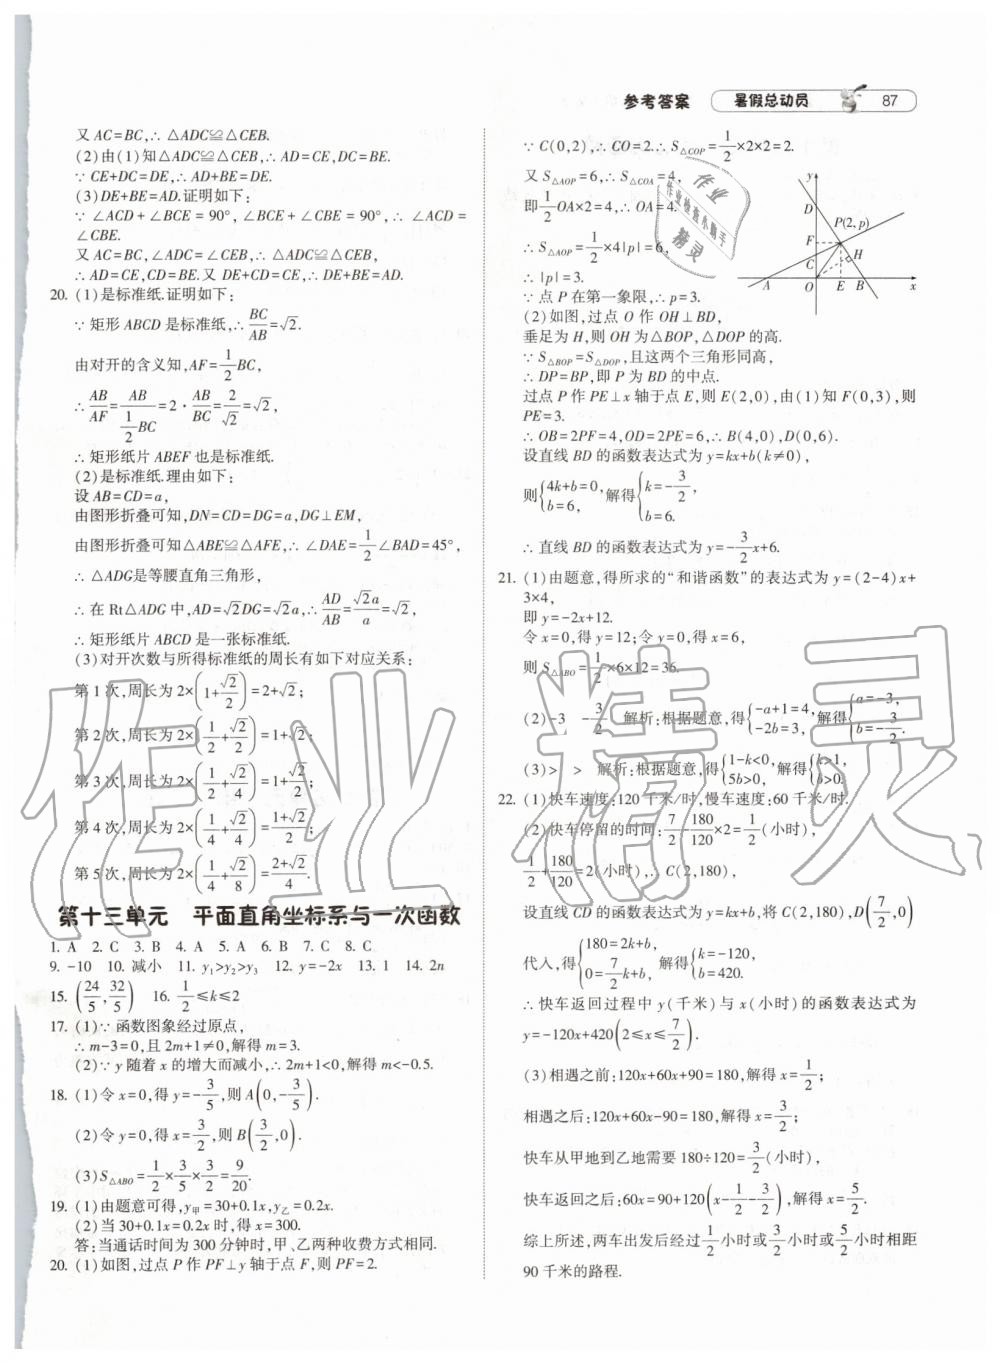 参考答案 暑假总动员 87
又 AC=BC,∴ △ADC≌△CEB.
(2)由(1)知△ADC≌△CEB,∴ AD=CE,DC=BE.
∵ CE+DC=DE,∴ AD+BE=DE.
(3)DE+BE=AD.证明如下:
∵ ∠ACD+∠BCE=90°,∠BCE+∠CBE=90°,∴ ∠ACD=
∠CBE.
又 AC=BC,∠ADC=∠CEB,∴ △ADC≌△CEB,
∴ AD=CE,CD=BE.又 DE+CD=CE,∴ DE+BE=AD.
20. (1)是标准纸.证明如下:
∵ 矩形 ABCD 是标准纸,∴ BC/AB=√2.
由对开的含义知,AF=1/2 BC,
∴ AB/AF=AB/(1/2 BC)=2·AB/BC=2/√2=√2,
∴ 矩形纸片 ABEF 也是标准纸.
(2)是标准纸.理由如下:
设 AB=CD=a,
由图形折叠可知,DN=CD=DG=a,DG⊥EM,
由图形折叠可知△ABE≌△AFE,∴ ∠DAE=1/2∠BAD=45°,
∴ △ADG是等腰直角三角形,
∴ 在 Rt△ADG 中,AD=√2DG=√2a,∴ AD/AB=√2a/a=√2,
∴ 矩形纸片 ABCD 是一张标准纸.
(3)对开次数与所得标准纸的周长有如下对应关系:
第 1 次,周长为 2×(1+√2/2)=2+√2;
第 2 次,周长为 2×(1/2+√2/2)=1+√2;
第 3 次,周长为 2×(1/2+√2/4)=1+√2/2;
第 4 次,周长为 2×(1/4+√2/4)=(1+√2)/2;
第 5 次,周长为 2×(1/4+√2/8)=(2+√2)/4.
第十三单元 平面直角坐标系与一次函数
1. A 2. C 3. B 4. A 5. A 6. B 7. C 8. C
9. -10 10. 减小 11. y₁>y₂>y₃ 12. y=-2x 13. 1 14. 2n
15. (24/5,32/5) 16. 1/2≤k≤2
17. (1)∵ 函数图象经过原点,
∴ m-3=0,且 2m+1≠0,解得 m=3.
(2)∵ y 随着 x 的增大而减小,∴ 2m+1<0,解得 m<-0.5.
18. (1)令 x=0,得 y=-3/5,则 A(0,-3/5).
(2)令 y=0,得 x=3/2,则 B(3/2,0).
(3)S△ABO=1/2×3/5×3/2=9/20.
19. (1)由题意可得,y甲=30+0.1x,y乙=0.2x.
(2)当 30+0.1x=0.2x 时,得 x=300.
答:当通话时间为 300 分钟时,甲、乙两种收费方式相同.
20. (1)如图,过点 P 作 PF⊥y 轴于点 F,则 PF=2.
∵ C(0,2),∴ CO=2.∴ S△COP=1/2×2×2=2.
又 S△AOP=6,∴ S△COA=4,
即1/2 OA×2=4,∴ OA=4.
∴ S△AOP=1/2×4|p|=6,
∴ |p|=3.
∵ 点 P 在第一象限,∴ p=3.
y D P(2,p) F C H A O E B x
(2)如图,过点 O 作 OH⊥BD,
垂足为 H,则 OH 为△BOP,△DOP 的高.
∵ S△BOP=S△DOP,且这两个三角形同高,
∴ DP=BP,即 P 为 BD 的中点.
过点 P 作 PE⊥x 轴于点 E,则 E(2,0),由(1)知 F(0,3),则
PE=3.
∴ OB=2PF=4,OD=2PE=6,∴ B(4,0),D(0,6).
设直线 BD 的函数表达式为 y=kx+b(k≠0),
则{4k+b=0, b=6, 解得{k=-3/2, b=6.
∴ 直线 BD 的函数表达式为 y=-3/2x+6.
21. (1)由题意,得所求的“和谐函数”的表达式为 y=(2-4)x+
3×4,
即 y=-2x+12.
令 x=0,得 y=12;令 y=0,得 x=6,
则 S△ABO=1/2×6×12=36.
(2)-3 -3/2 解析:根据题意,得{-a+1=4, -2b=3, 解得{a=-3, b=-3/2.
(3)> > 解析:根据题意,得{1-k<0, 5b>0, 解得{k>1, b>0.
22. (1)快车速度:120 千米/时,慢车速度:60 千米/时.
(2)快车停留的时间:7/2-180/120×2=1/2(小时),
1/2+180/120=2(小时),∴ C(2,180),
设直线 CD 的函数表达式为 y=kx+b,将 C(2,180),D(7/2,0)
代入,得{180=2k+b, 0=7/2k+b, 解得{k=-120, b=420.
∴ 快车返回过程中 y(千米)与 x(小时)的函数表达式为
y=-120x+420(2≤x≤7/2).
(3)相遇之前:120x+60x+90=180,解得 x=1/2;
相遇之后:120x+60x-90=180,解得 x=3/2;
快车从甲地到乙地需要 180÷120=3/2(小时),
快车返回之后:60x=90+120(x-1/2-3/2),解得 x=5/2.
综上所述,两车出发后经过1/2小时或3/2小时或5/2小时相距
90 千米的路程.
作业检查小助手
作业精灵
作业精灵